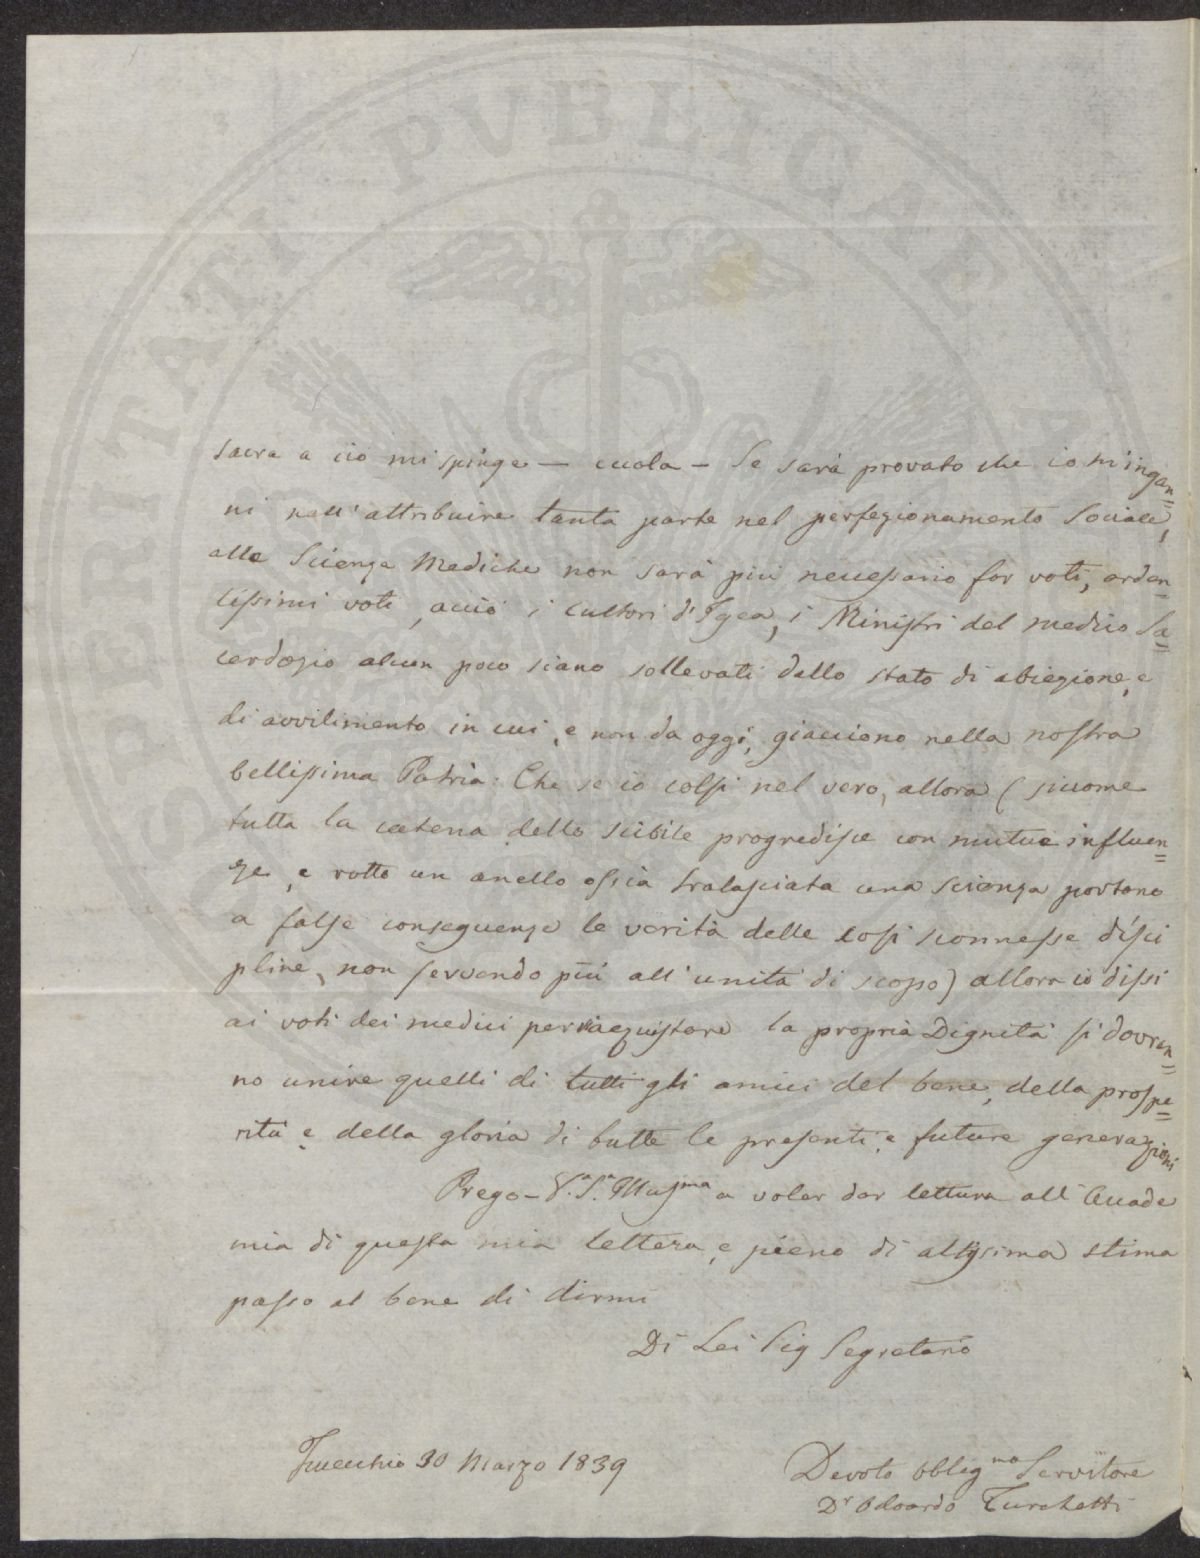 PROSPERITATI PVBLICAE A
sacra a ciò mi spinge — cuola — Se sarà provato che io m'ingan=
ni nell'attribuire tanta parte nel perfezionamento Sociale,
alle Scienze Mediche non sarà più necessario far voti, arden=
tissimi voti, acciò i cultori d'Igea, i Ministri del medico Sa=
cerdozio alcun poco siano sollevati dallo stato di abiezione, e
di avvilimento in cui, e non da oggi, giacciono nella nostra
bellissima Patria: Che se io colsi nel vero, allora (siccome
tutta la catena dello scibile progredisce con mutue influen=
ze, e rotto un anello ossia tralasciata una scienza portano
a false conseguenze le verità delle così sconnesse disci
pline, non servendo più all'unità di scopo) allora io dissi
ai voti dei medici per riacquistare la propria Dignità si dovran=
no unire quelli di tutti gli amici del bene, della prospe=
rità e della gloria di tutte le presenti, e future generazioni
Prego - V.a S.a Illus.ma a voler dar lettura all'Accade
mia di questa mia lettera, e pieno di altissima stima
passo al bene di dirmi
Di Lei Sig Segretario
Fucecchio 30 Marzo 1839
Devoto obblig.mo Servitore
D.r Odoardo Turchetti